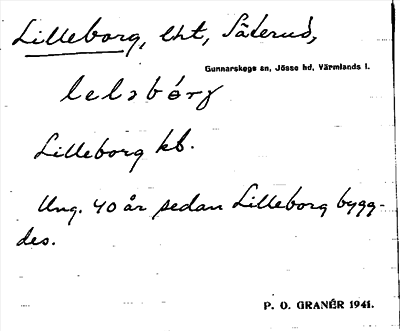 Lilleborg, lht, Säterud,
Gunnarskogs sn, Jösse hd, Värmlands l.
lelsbórg
Lilleborg kb.
Ung. 40 år sedan Lilleborg bygg-
des.
P. O. GRANÉR 1941.